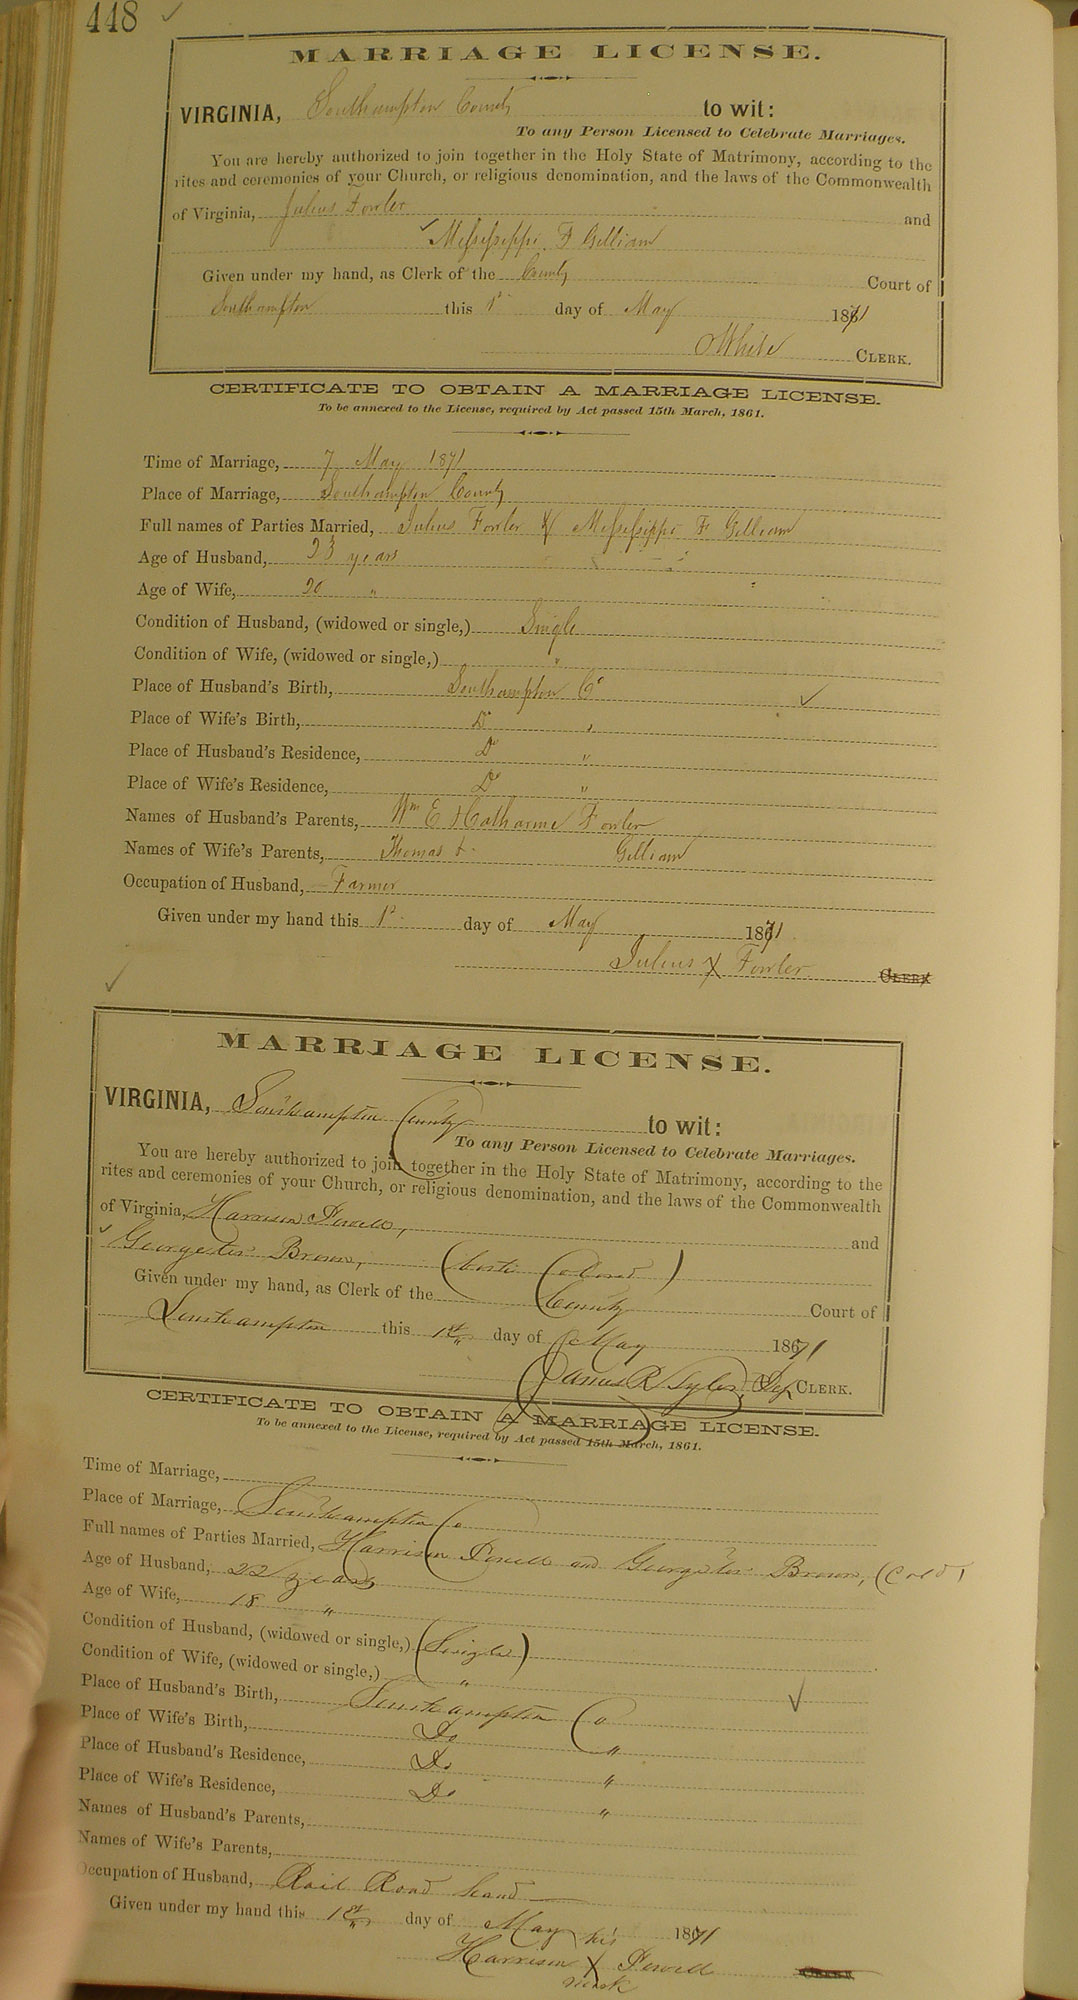 448 ✓
MARRIAGE LICENSE.
VIRGINIA, Southampton County to wit:
To any Person Licensed to Celebrate Marriages.
You are hereby authorized to join together in the Holy State of Matrimony, according to the
rites and ceremonies of your Church, or religious denomination, and the laws of the Commonwealth
of Virginia, Julius Fowler and
✓ Mississippi F Gilliam
Given under my hand, as Clerk of the County Court of
Southampton this 1st day of May 1871
White CLERK.
CERTIFICATE TO OBTAIN A MARRIAGE LICENSE.
To be annexed to the License, required by Act passed 15th March, 1861.
Time of Marriage, 7 May 1871
Place of Marriage, Southampton County
Full names of Parties Married, Julius Fowler & Mississippi F Gilliam
Age of Husband, 23 years
Age of Wife, 20 "
Condition of Husband, (widowed or single,) Single
Condition of Wife, (widowed or single,) "
Place of Husband's Birth, Southampton Co ✓
Place of Wife's Birth, Do "
Place of Husband's Residence, Do "
Place of Wife's Residence, Do "
Names of Husband's Parents, Wm E & Catharine Fowler
Names of Wife's Parents, Thomas & Gilliam
Occupation of Husband, Farmer
Given under my hand this 1st day of May 1871
Julius X Fowler CLERK
✓
MARRIAGE LICENSE.
VIRGINIA, Southampton County to wit:
To any Person Licensed to Celebrate Marriages.
You are hereby authorized to join together in the Holy State of Matrimony, according to the
rites and ceremonies of your Church, or religious denomination, and the laws of the Commonwealth
of Virginia, Harrison Powell, and
✓ Brown, (both Colored)
Given under my hand, as Clerk of the County Court of
Southampton this 1st day of May 1871
James R Tyler, Dep CLERK.
CERTIFICATE TO OBTAIN A MARRIAGE LICENSE.
To be annexed to the License, required by Act passed 15th March, 1861.
Time of Marriage,
Place of Marriage, Southampton Co
Full names of Parties Married, Harrison Powell and Brown, (Cold)
Age of Husband, 22 years
Age of Wife, 18 "
Condition of Husband, (widowed or single,) (Single)
Condition of Wife, (widowed or single,) "
Place of Husband's Birth, Southampton Co ✓
Place of Wife's Birth, Do "
Place of Husband's Residence, Do "
Place of Wife's Residence, Do "
Names of Husband's Parents,
Names of Wife's Parents,
Occupation of Husband, Rail Road hand
Given under my hand this 1st day of May 1871
his
Harrison X Powell CLERK
mark